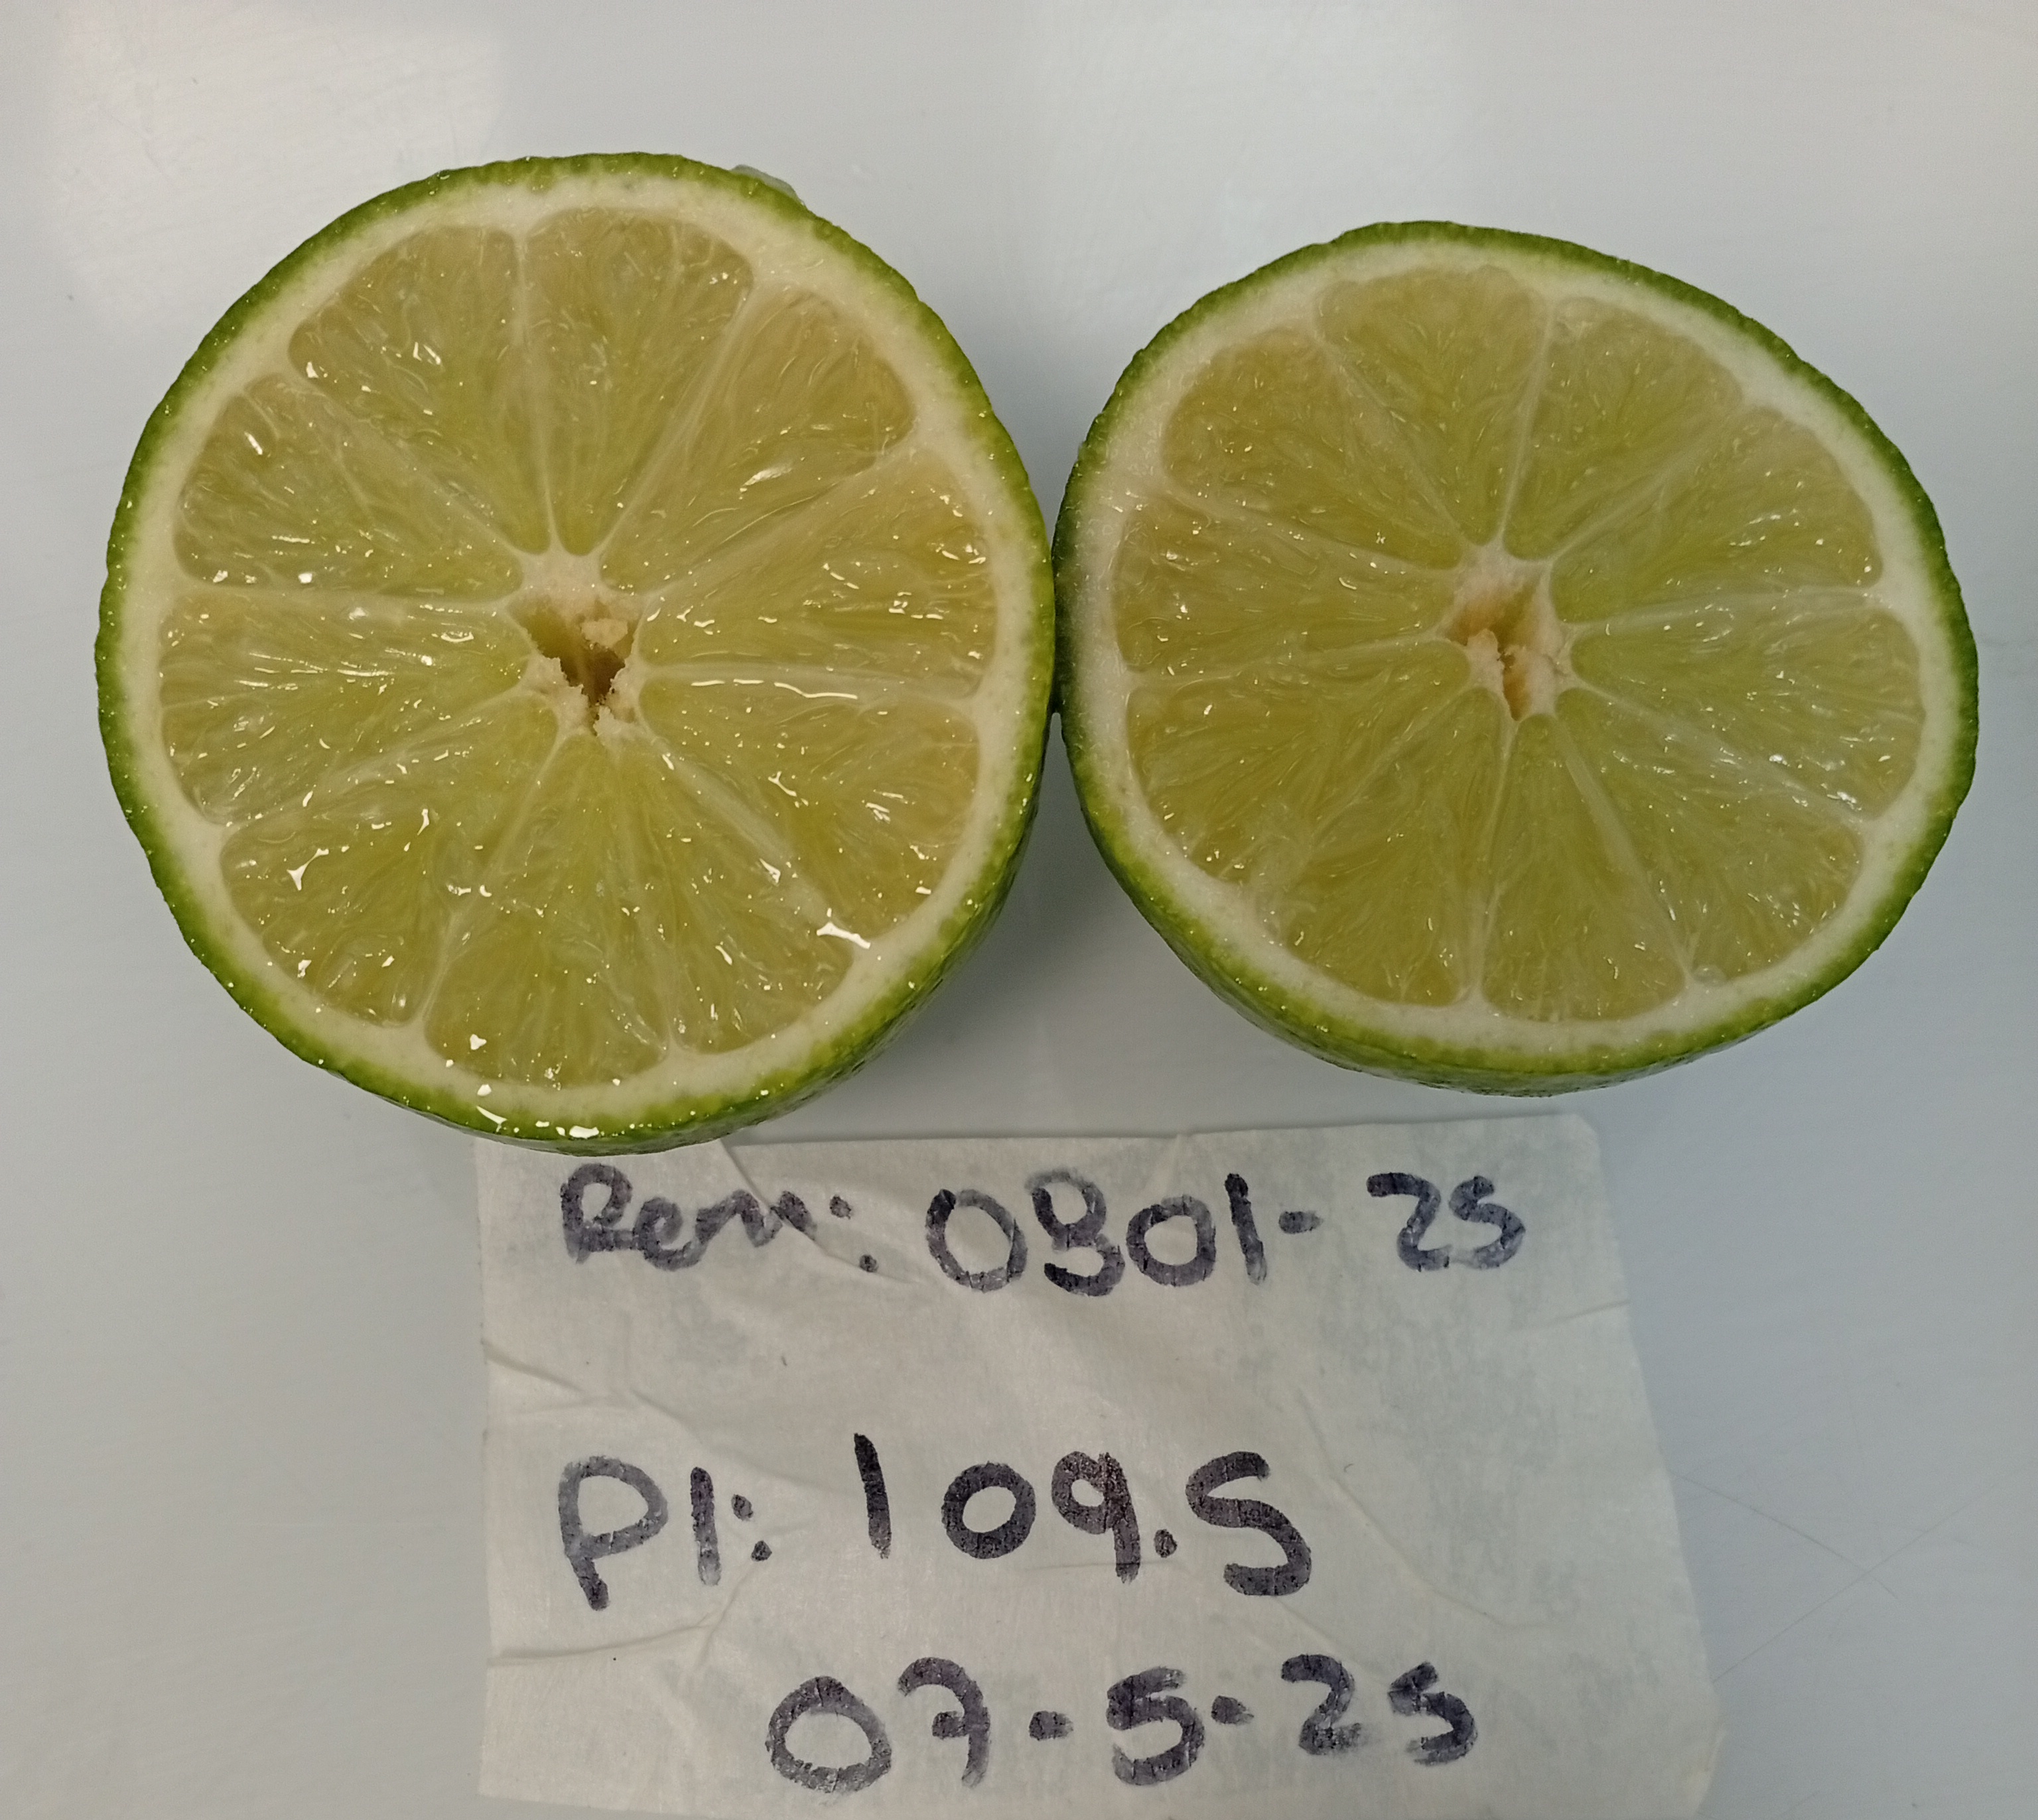 Rem: 0801-25
PI: 109.5
07-5-25